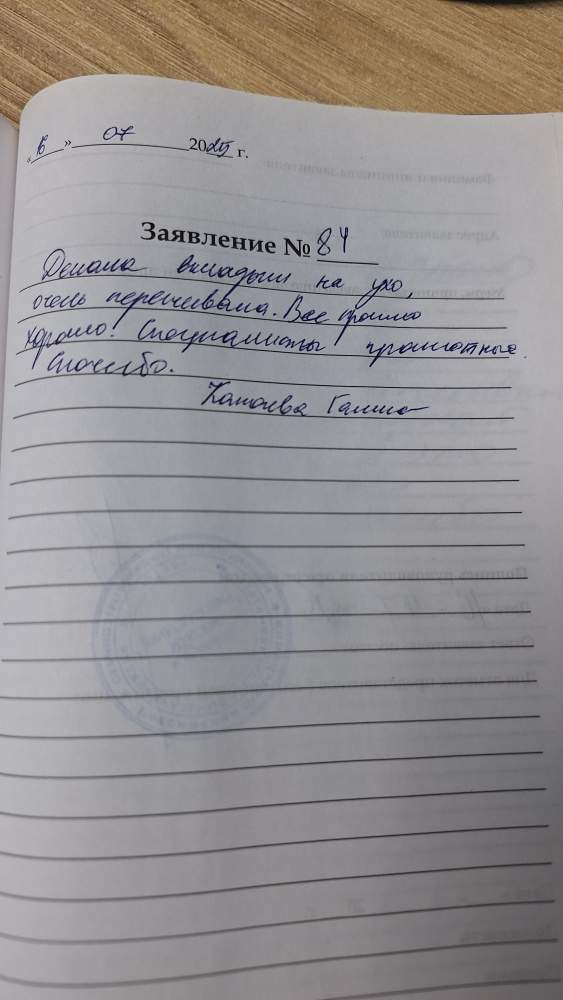 « » 07 2025 г.
Заявление № 84
Делала вкладыш на ухо,
очень переживала. Все прошло
хорошо. Специалисты грамотные.
Спасибо.
Галина